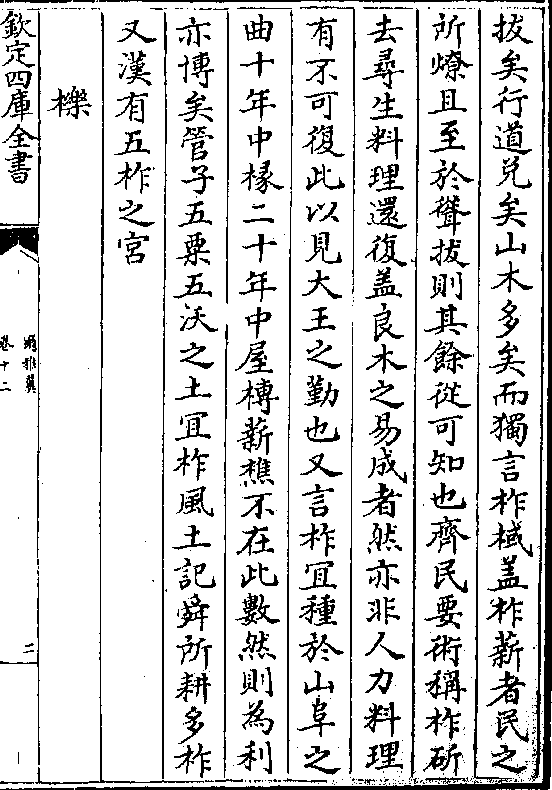 拔矣行道兌矣山木多矣而獨言柞棫盖柞薪者民之
所燎且至於聳拔則其餘從可知也齊民要術稱柞斫
去尋生料理還復盖良木之易成者然亦非人力料理
有不可復此以見大王之勤也又言柞宜種於山阜之
曲十年中椽二十年中屋榑薪樵不在此數然則為利
亦博矣管子五粟五沃之土宜柞風土記舜所耕多柞
又漢有五柞之宮
櫟
欽定四庫全書
爾雅翼
卷十二
二